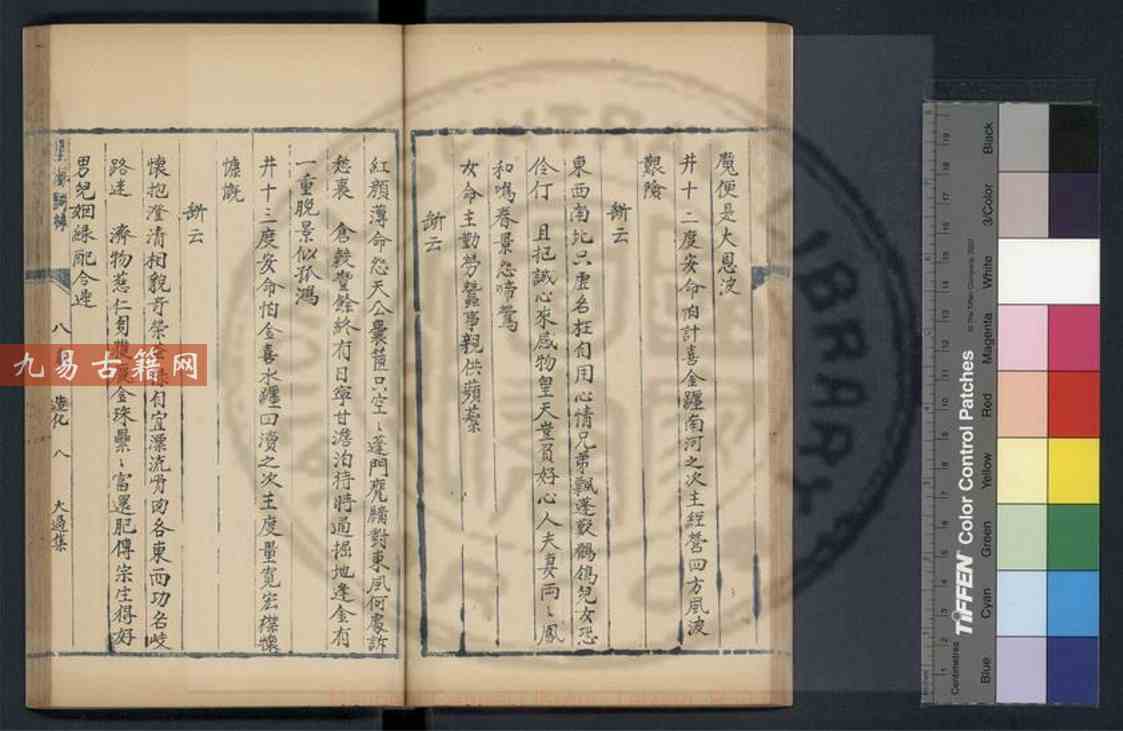 魔便是大恩波
井十二度安命怕計喜金躔南河之次主經營四方風波
艱險
斷云
東西南北只虛名枉自用心情兄弟飄蓬歎鶺鴒兒女恐
伶仃 且把誠心來感物皇天豈負好心人夫妻兩〻鳳
和鳴春景怨啼鶯
女命主勤勞蠶事親供蘋蘩
斷云
紅顏薄命怨天公囊篋只空〻蓬門甕牖對東風何處訴
愁裏 倉敖豐餘終有日寧甘澹泊待時通掘地逢金有
一重脫景似孤鴻
井十三度安命怕金喜水躔四瀆之次主度量寬宏襟懷
慷慨
斷云
懷抱澄清相貌奇榮 自宜漂流骨肉各東西功名岐
路迷 濟物慈仁 金珠纍〻富還肥傳宗生得好
男兒姻緣配合遲
造化
八
大過集
九易古籍网
TIFFEN Color Control Patches
© The Tiffen Company, 2007
Centimetres
Blue
Cyan
Green
Yellow
Red
Magenta
White
3/Color
Black